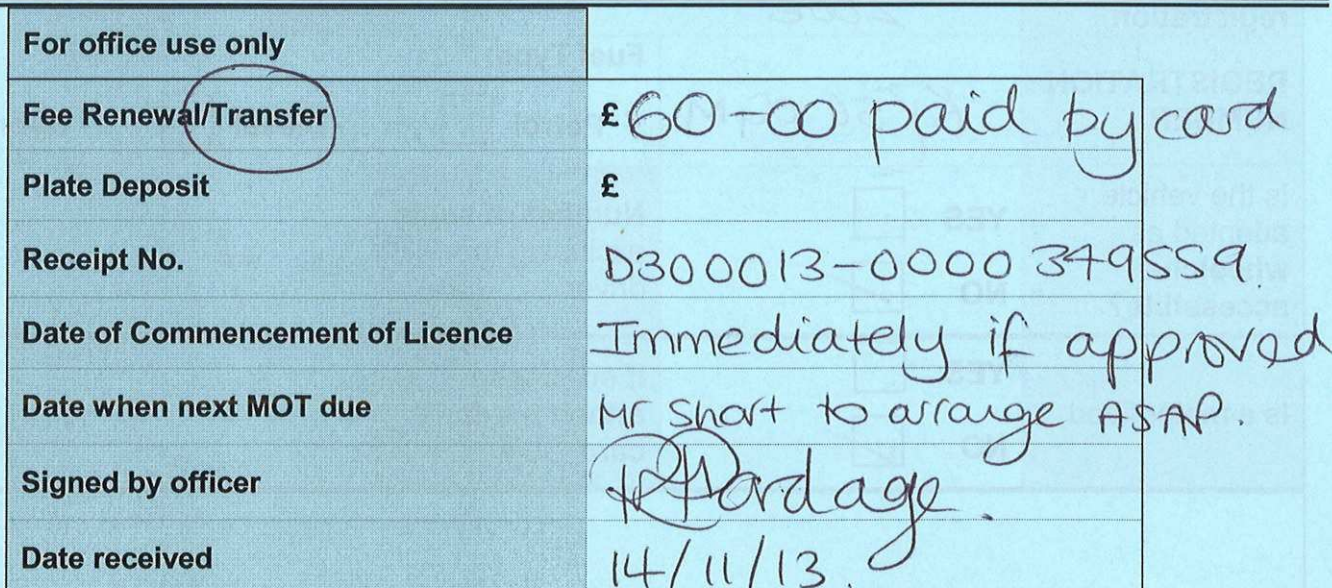 For office use only
Fee Renewal/Transfer £60-00 paid by card
Plate Deposit £
Receipt No. D300013-0000349559.
Date of Commencement of Licence Immediately if approved
Date when next MOT due Mr Short to arrange ASAP.
Signed by officer
Date received 14/11/13.